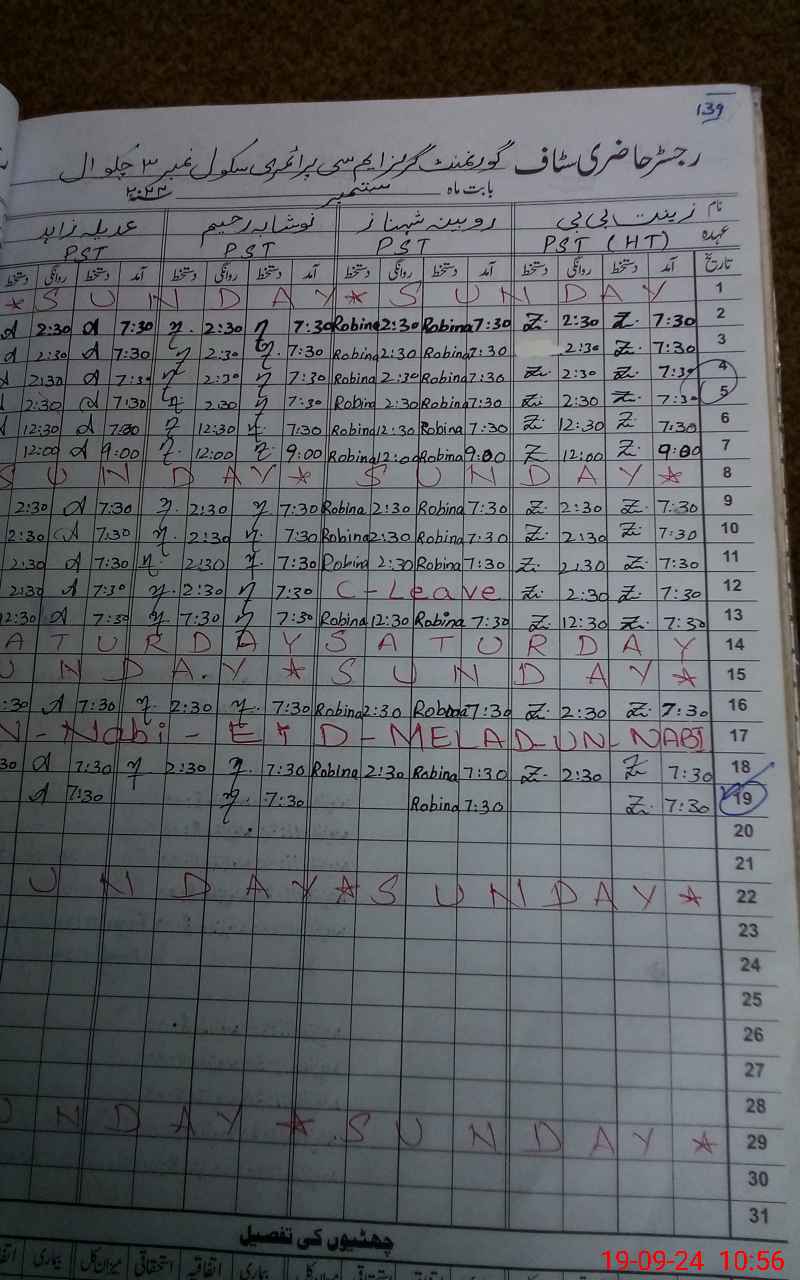 139
رجسٹر حاضری سٹاف گورنمنٹ گرلز ایم سی پرائمری سکول نمبر ۳ چکوال
بابت ماہ ستمبر
نام زینت بی بی روبینہ شہناز نوشابہ رحیم عدیلہ زاہد
عہدہ PST (HT) PST PST PST
تاریخ آمد دستخط روانگی دستخط آمد دستخط روانگی دستخط آمد دستخط روانگی دستخط آمد دستخط روانگی دستخط
* S U N D A Y * S U N D A Y 1
d 2:30 d 7:30 η. 2:30 η 7:30 Robina 2:30 Robina 7:30 Z. 2:30 Z. 7:30 2
d 2:30 d 7:30 η 2:30 η. 7:30 Robina 2:30 Robina 7:30 2:30 Z. 7:30 3
d 2:30 d 7:30 η 2:30 η 7:30 Robina 2:30 Robina 7:30 Z. 2:30 Z. 7:30 4
2:30 d 7:30 η. 2:30 η 7:30 Robina 2:30 Robina 7:30 Z. 2:30 Z. 7:30 5
d 12:30 d 7:30 η 12:30 η. 7:30 Robina 12:30 Robina 7:30 Z. 12:30 Z. 7:30 6
12:00 d 9:00 η. 12:00 η. 9:00 Robina 12:00 Robina 9:00 Z 12:00 Z. 9:00 7
S U N D A Y * S U N D A Y * 8
2:30 d 7:30 η. 2:30 η 7:30 Robina 2:30 Robina 7:30 Z. 2:30 Z. 7:30 9
2:30 d 7:30 η. 2:30 η. 7:30 Robina 2:30 Robina 7:30 Z. 2:30 Z. 7:30 10
2:30 d 7:30 η. 2:30 η. 7:30 Robina 2:30 Robina 7:30 Z. 2:30 Z. 7:30 11
2:30 d 7:30 η. 2:30 η 7:30 C - Leave Z. 2:30 Z. 7:30 12
12:30 d 7:30 η 7:30 η 7:30 Robina 12:30 Robina 7:30 Z. 12:30 Z. 7:30 13
A T U R D A Y S A T U R D A Y 14
U N D A Y * S U N D A Y * 15
:30 d 7:30 η. 2:30 η. 7:30 Robina 2:30 Robina 7:30 Z. 2:30 Z. 7:30 16
N - Nabi - EID - MELAD - UN - NABI 17
30 d 7:30 η 2:30 η. 7:30 Robina 2:30 Robina 7:30 Z. 2:30 Z 7:30 18
d 7:30 η. 7:30 Robina 7:30 Z. 7:30 19
20
21
U N D A Y * S U N D A Y * 22
23
24
25
26
27
28
U N D A Y * S U N D A Y * 29
30
31
چھٹیوں کی تفصیل
اتفاقیہ استحقاقی میزان کل بیماری
19-09-24 10:56